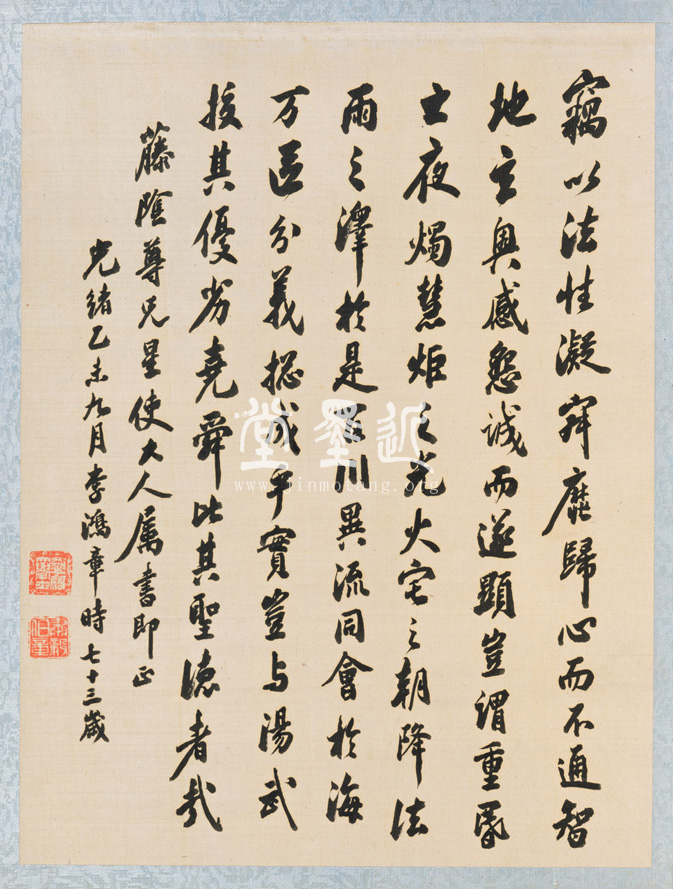 竊以法性凝寂靡歸心而不通智
地玄奧感懇誠而遂顯豈謂重昏
之夜燭慧炬之光火宅之朝降法
雨之澤於是百川異流同會於海
万區分義揔成乎實豈与湯武
挍其優劣堯舜比其聖德者哉
藤陰尊兄星使大人属書即正
光緒乙未九月李鴻章時七十三歲
近墨堂
www.jinmotang.org